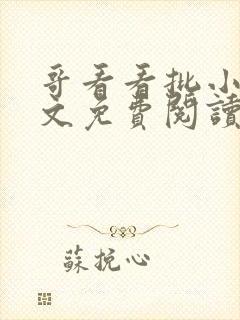 哥看看批小
文免費閱讀
蘇挽心